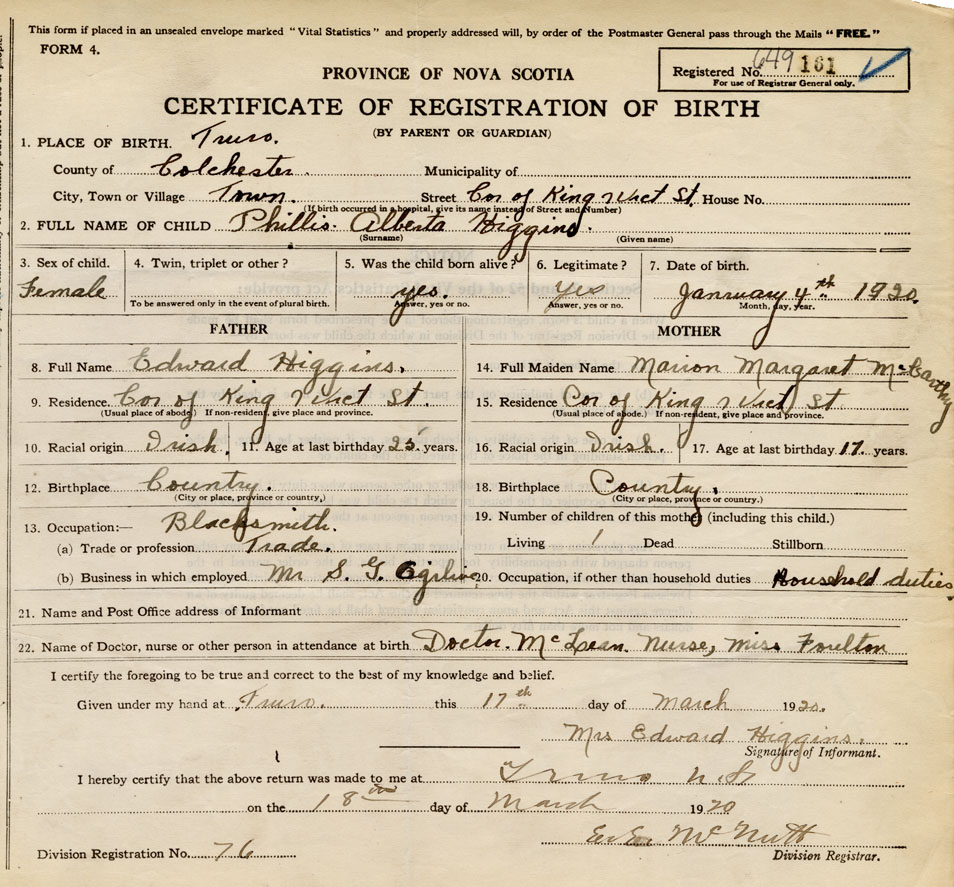 This form if placed in an unsealed envelope marked "Vital Statistics" and properly addressed will, by order of the Postmaster General pass through the Mails "FREE."
FORM 4.
Registered No. 649 161
For use of Registrar General only.
PROVINCE OF NOVA SCOTIA
CERTIFICATE OF REGISTRATION OF BIRTH
(BY PARENT OR GUARDIAN)
1. PLACE OF BIRTH. Truro.
County of Colchester. Municipality of
City, Town or Village Town. Street Cor of King & Vict St. House No.
(If birth occurred in a hospital, give its name instead of Street and Number)
2. FULL NAME OF CHILD Phillis Alberta Higgins.
(Surname) (Given name)
3. Sex of child. 4. Twin, triplet or other? 5. Was the child born alive? 6. Legitimate? 7. Date of birth.
Female yes. Yes January 4th 1920.
To be answered only in the event of plural birth. Answer, yes or no. Answer, yes or no. Month, day, year.
FATHER MOTHER
8. Full Name Edward Higgins. 14. Full Maiden Name Marion Margaret McCarthy
9. Residence. Cor of King & Vict St. 15. Residence Cor of King & Vict St
(Usual place of abode) If non-resident, give place and province. (Usual place of abode.) If non-resident, give place and province.
10. Racial origin Irish. 11. Age at last birthday 25 years. 16. Racial origin Irish. 17. Age at last birthday 17. years.
12. Birthplace Country. 18. Birthplace Country.
(City or place, province or country,) (City or place, province or country.)
13. Occupation:— Blacksmith. 19. Number of children of this mother (including this child.)
(a) Trade or profession Trade. Living 1 Dead Stillborn
(b) Business in which employed Mr S. G. 20. Occupation, if other than household duties Household duties
21. Name and Post Office address of Informant
22. Name of Doctor, nurse or other person in attendance at birth Doctor. McLean. Nurse, Miss Foulton
I certify the foregoing to be true and correct to the best of my knowledge and belief.
Given under my hand at Truro. this 17th day of March 1920.
Mrs Edward Higgins.
Signature of Informant.
I hereby certify that the above return was made to me at Truro N.S.
on the 18th day of March 1920
McNutt
Division Registration No. 76 Division Registrar.